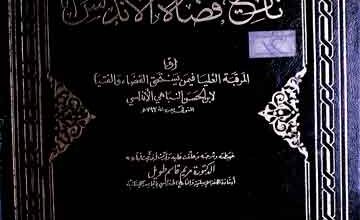 تاريخ قضاة الأندلس
أو
المرقبة العليا فيمن يستحق القضاء والفتيا
لأبي الحسن النباهي الأندلسي
ضبطه وشرحه وعلق عليه
الدكتورة مريم قاسم طويل